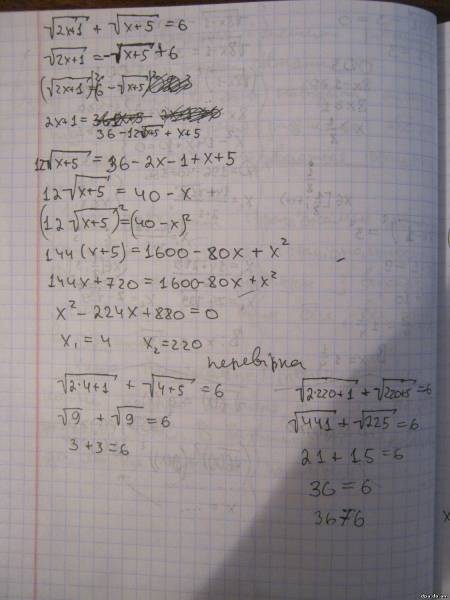 √2x+1 + √x+5 = 6
√2x+1 = -√x+5 + 6
(√2x+1)² = (6 - √x+5)²
2x+1 =
36-12√x+5 + x+5
12√x+5 = 36-2x-1+x+5
12√x+5 = 40-x
(12√x+5)² = (40-x)²
144(x+5) = 1600-80x+x²
144x+720 = 1600-80x+x²
x²-224x+880=0
x₁=4 x₂=220
перевірка
√2·4+1 + √4+5 = 6
√9 + √9 = 6
3+3=6
√2·220+1 + √220+5 = 6
√441 + √225 = 6
21+15=6
36=6
36≠6